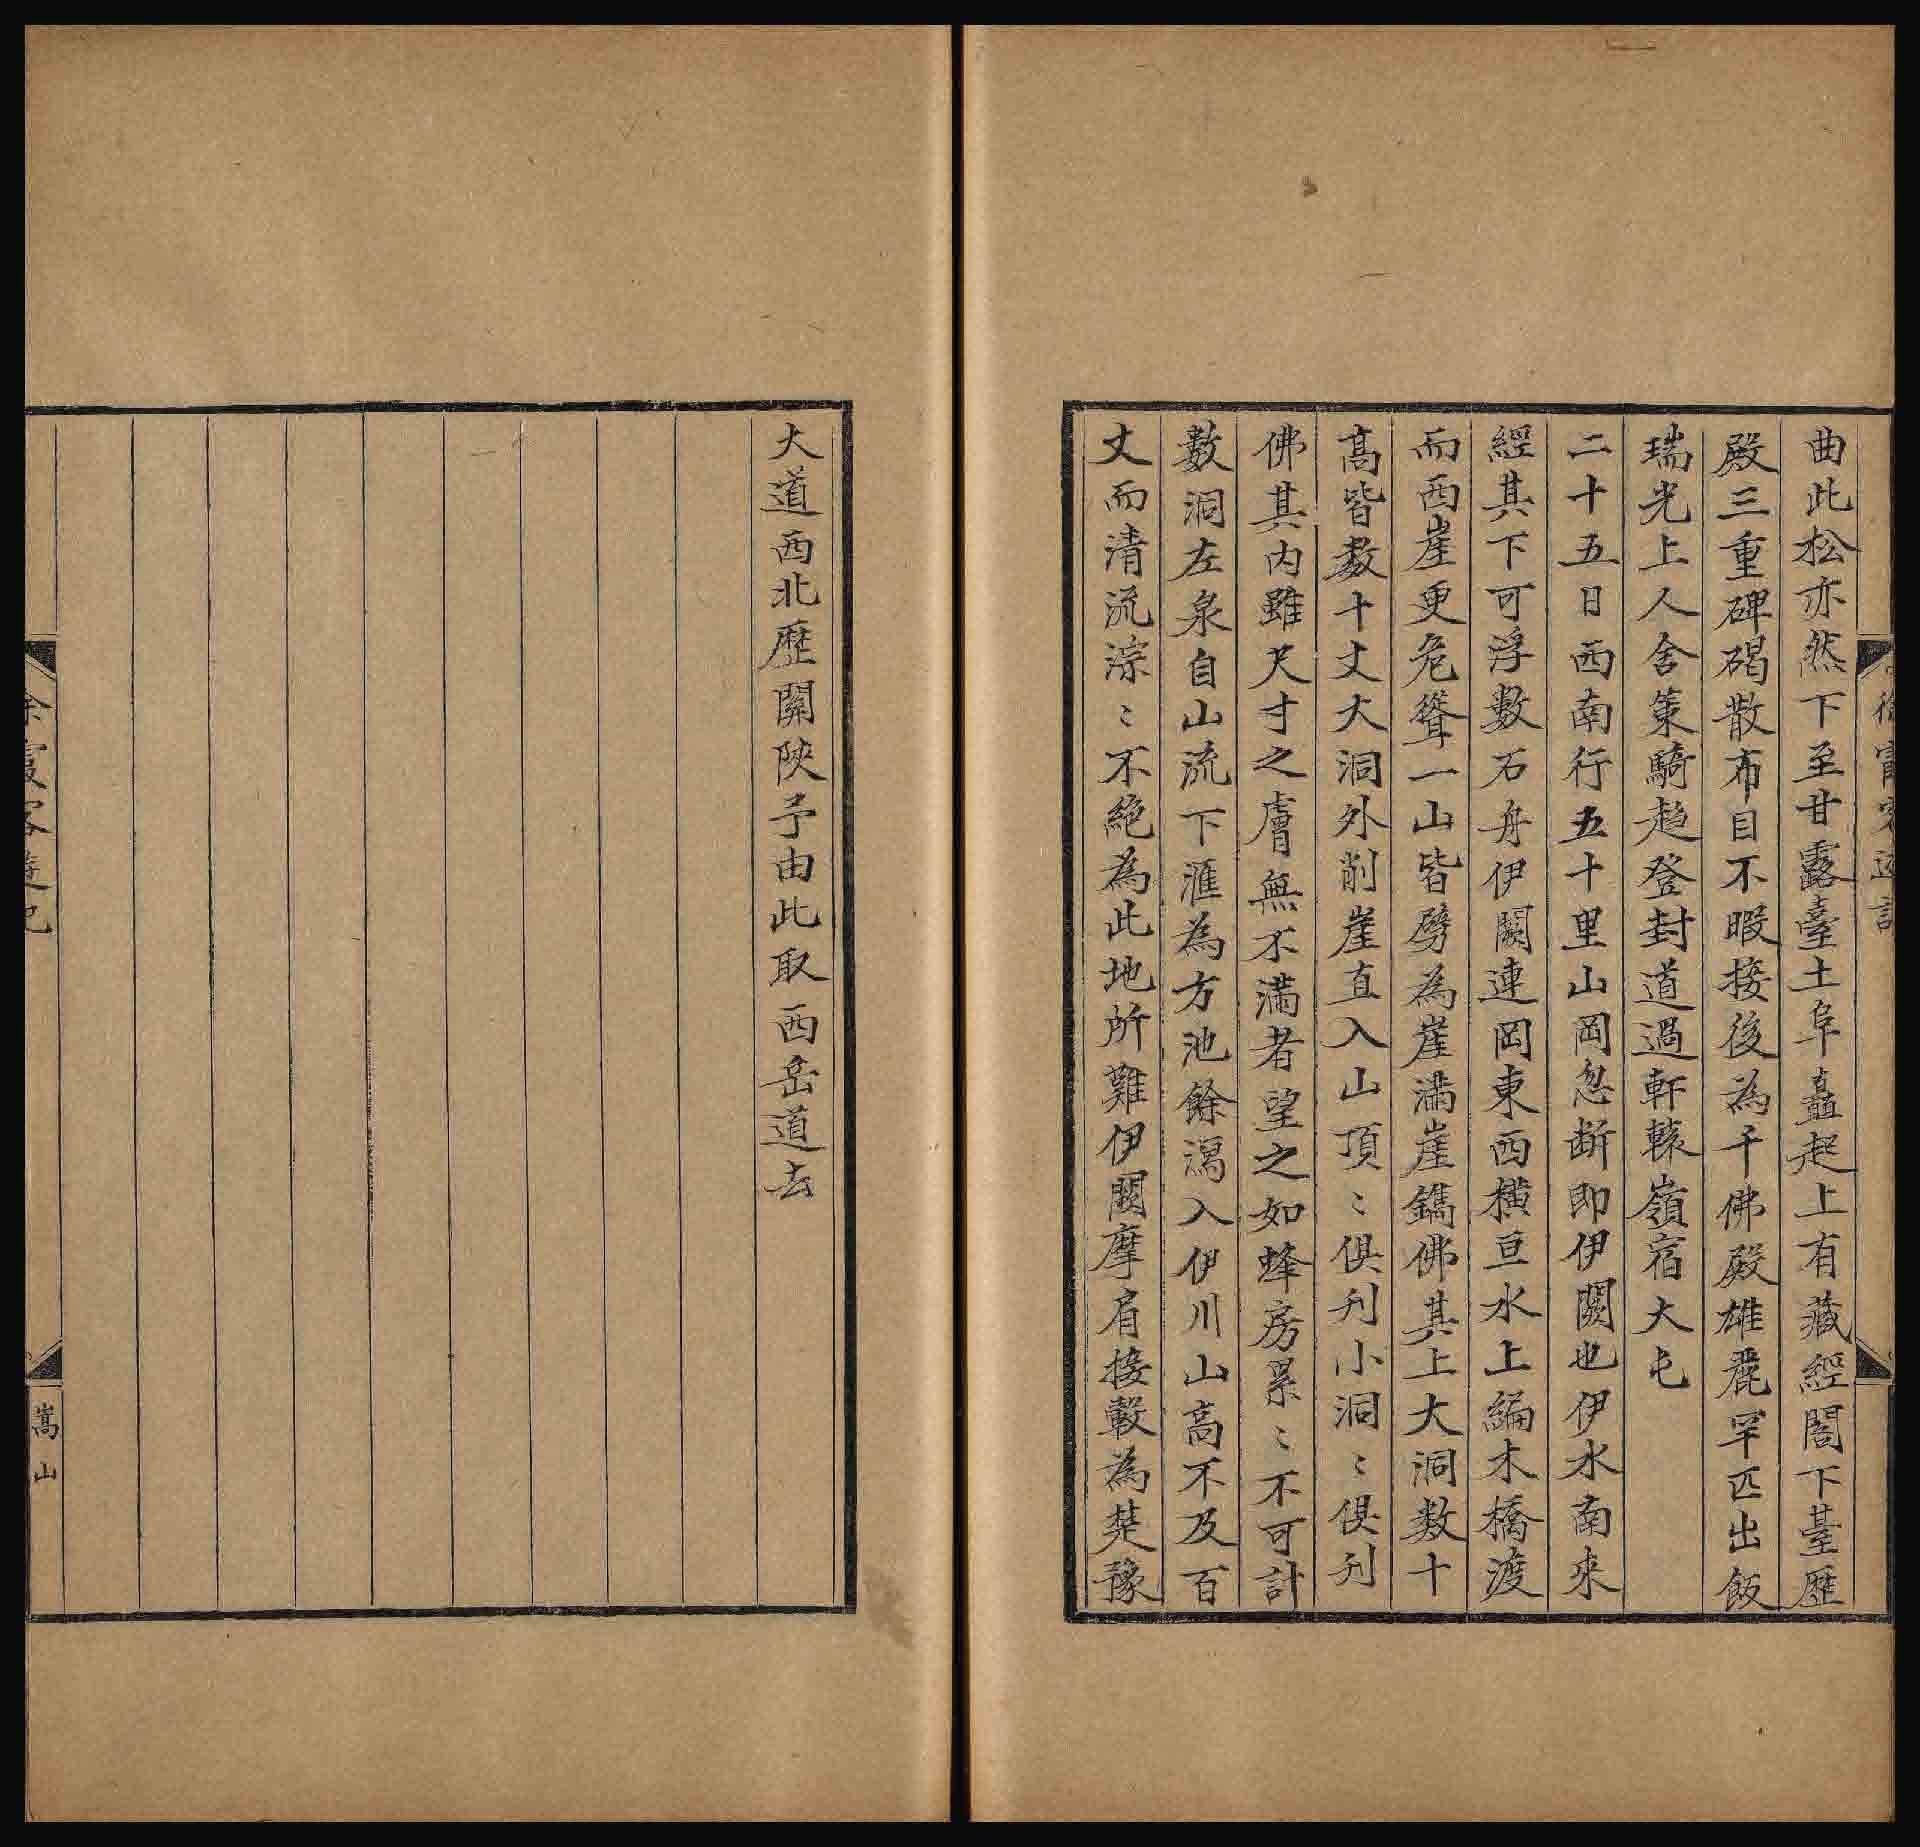 徐霞客遊記
曲此松亦然下至甘露臺土阜矗起上有藏經閣下臺歷
殿三重碑碣散布目不暇接後為千佛殿雄麗罕匹出飯
瑞光上人舍策騎趨登封道過軒轅嶺宿大屯
二十五日西南行五十里山岡忽斷即伊闕也伊水南來
經其下可浮數石舟伊闕連岡東西橫亘水上編木橋渡
而西崖更危聳一山皆劈為崖滿崖鐫佛其上大洞数十
高皆数十丈大洞外削崖直入山頂〻俱刋小洞〻俱刋
佛其内雖尺寸之膚無不滿者望之如蜂房累〻不可計
數洞左泉自山流下滙為方池餘瀉入伊川山高不及百
丈而清流淙〻不絶為此地所難伊闕摩肩接轂為楚豫
大道西北歷關陝予由此取西岳道去
徐霞客遊記
嵩山